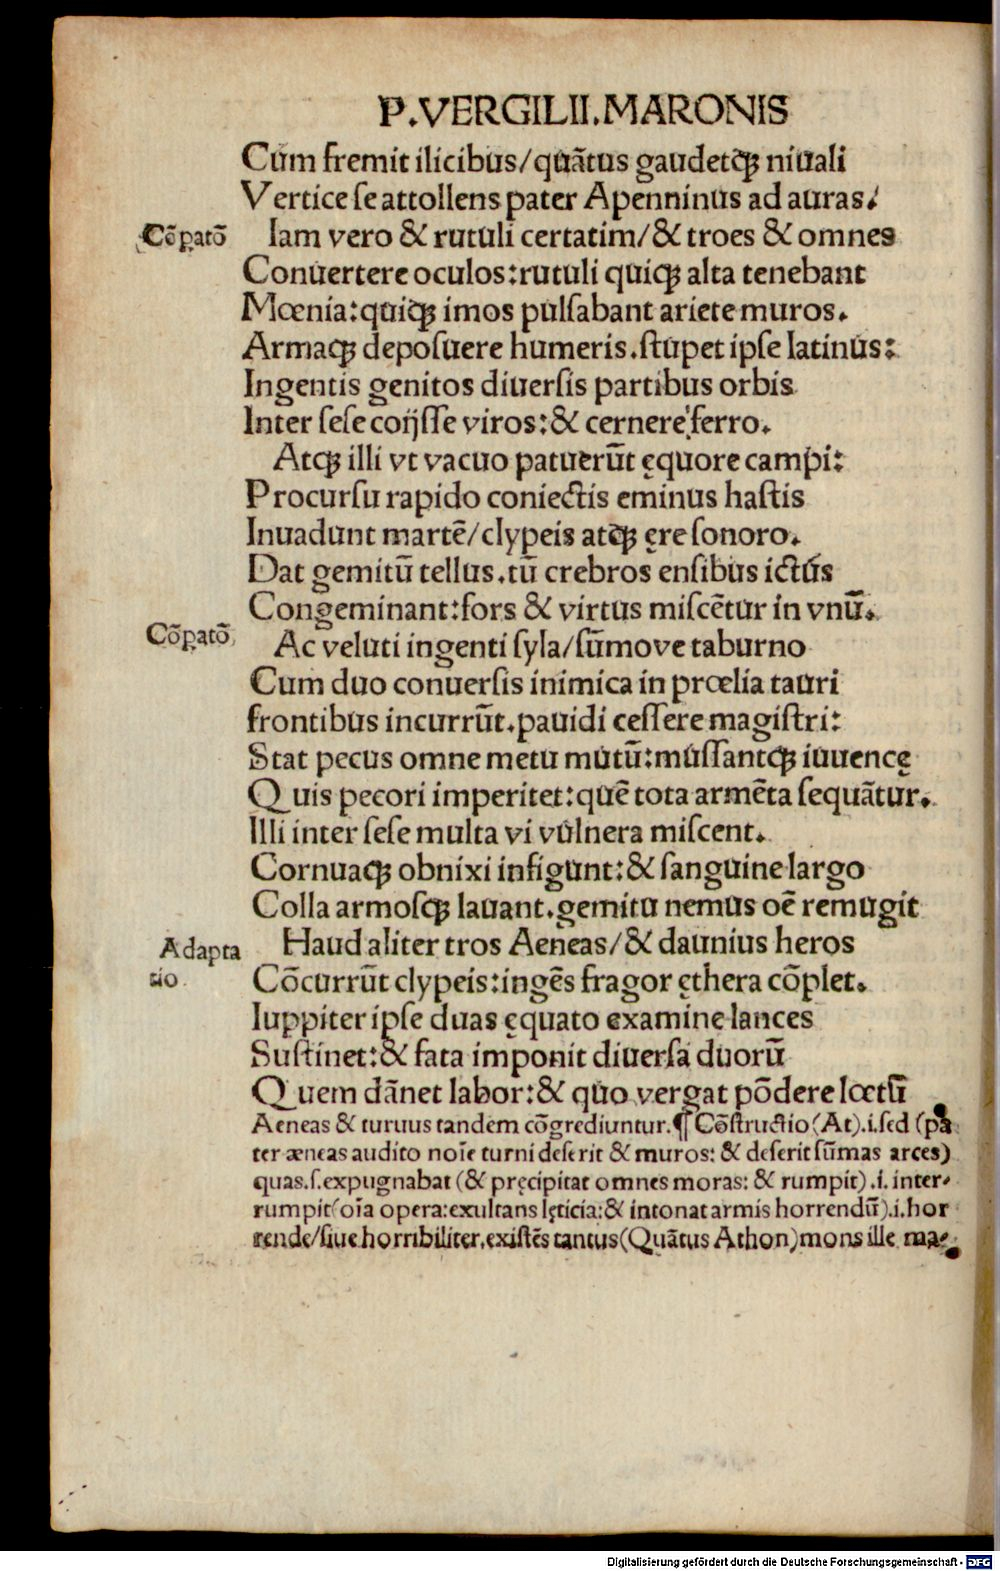 P.VERGILII.MARONIS
Cum fremit ilicibus/quātus gaudetqꝫ niuali
Vertice se attollens pater Apenninus ad auras.
Cōꝑatō
Iam vero & rutuli certatim/& troes & omnes
Conuertere oculos:rutuli quiqꝫ alta tenebant
Mœnia:quiqꝫ imos pulsabant ariete muros.
Armaqꝫ deposuere humeris.stupet ipse latinus:
Ingentis genitos diuersis partibus orbis
Inter sese coijsse viros:& cernere ferro.
Atqꝫ illi vt vacuo patuerūt ęquore campi:
Procursu rapido coniectis eminus hastis
Inuadunt martē/clypeis atqꝫ ęre sonoro.
Dat gemitū tellus.tū crebros ensibus ictus
Congeminant:fors & virtus miscētur in vnū.
Cōꝑatō
Ac veluti ingenti syla/sūmove taburno
Cum duo conuersis inimica in prœlia tauri
frontibus incurrūt.pauidi cessere magistri:
Stat pecus omne metu mutū:mussantqꝫ iuuencę
Quis pecori imperitet:quē tota armēta sequātur.
Illi inter sese multa vi vulnera miscent.
Cornuaqꝫ obnixi infigunt:& sanguine largo
Colla armosqꝫ lauant.gemitu nemus oē remugit
Adapta
tio.
Haud aliter tros Aeneas/& daunius heros
Cōcurrūt clypeis:ingēs fragor ęthera cōplet.
Iuppiter ipse duas ęquato examine lances
Sustinet:& fata imponit diuersa duorū
Quem dānet labor:& quo vergat pōdere lœtū
Aeneas & turuus tandem cōgrediuntur.¶ Cōstructio (At).i.sed (pa
ter æneas audito noīe turni deserit & muros: & deserit sūmas arces)
quas.s.expugnabat (& pręcipitat omnes moras: & rumpit).i. inter-
rumpit(oīa opera:exultans lęticia:& intonat armis horrendū).i.hor
rende/siue horribiliter.existēs tantus(Quātus Athon)mons ille ma-
Digitalisierung gefördert durch die Deutsche Forschungsgemeinschaft - DFG